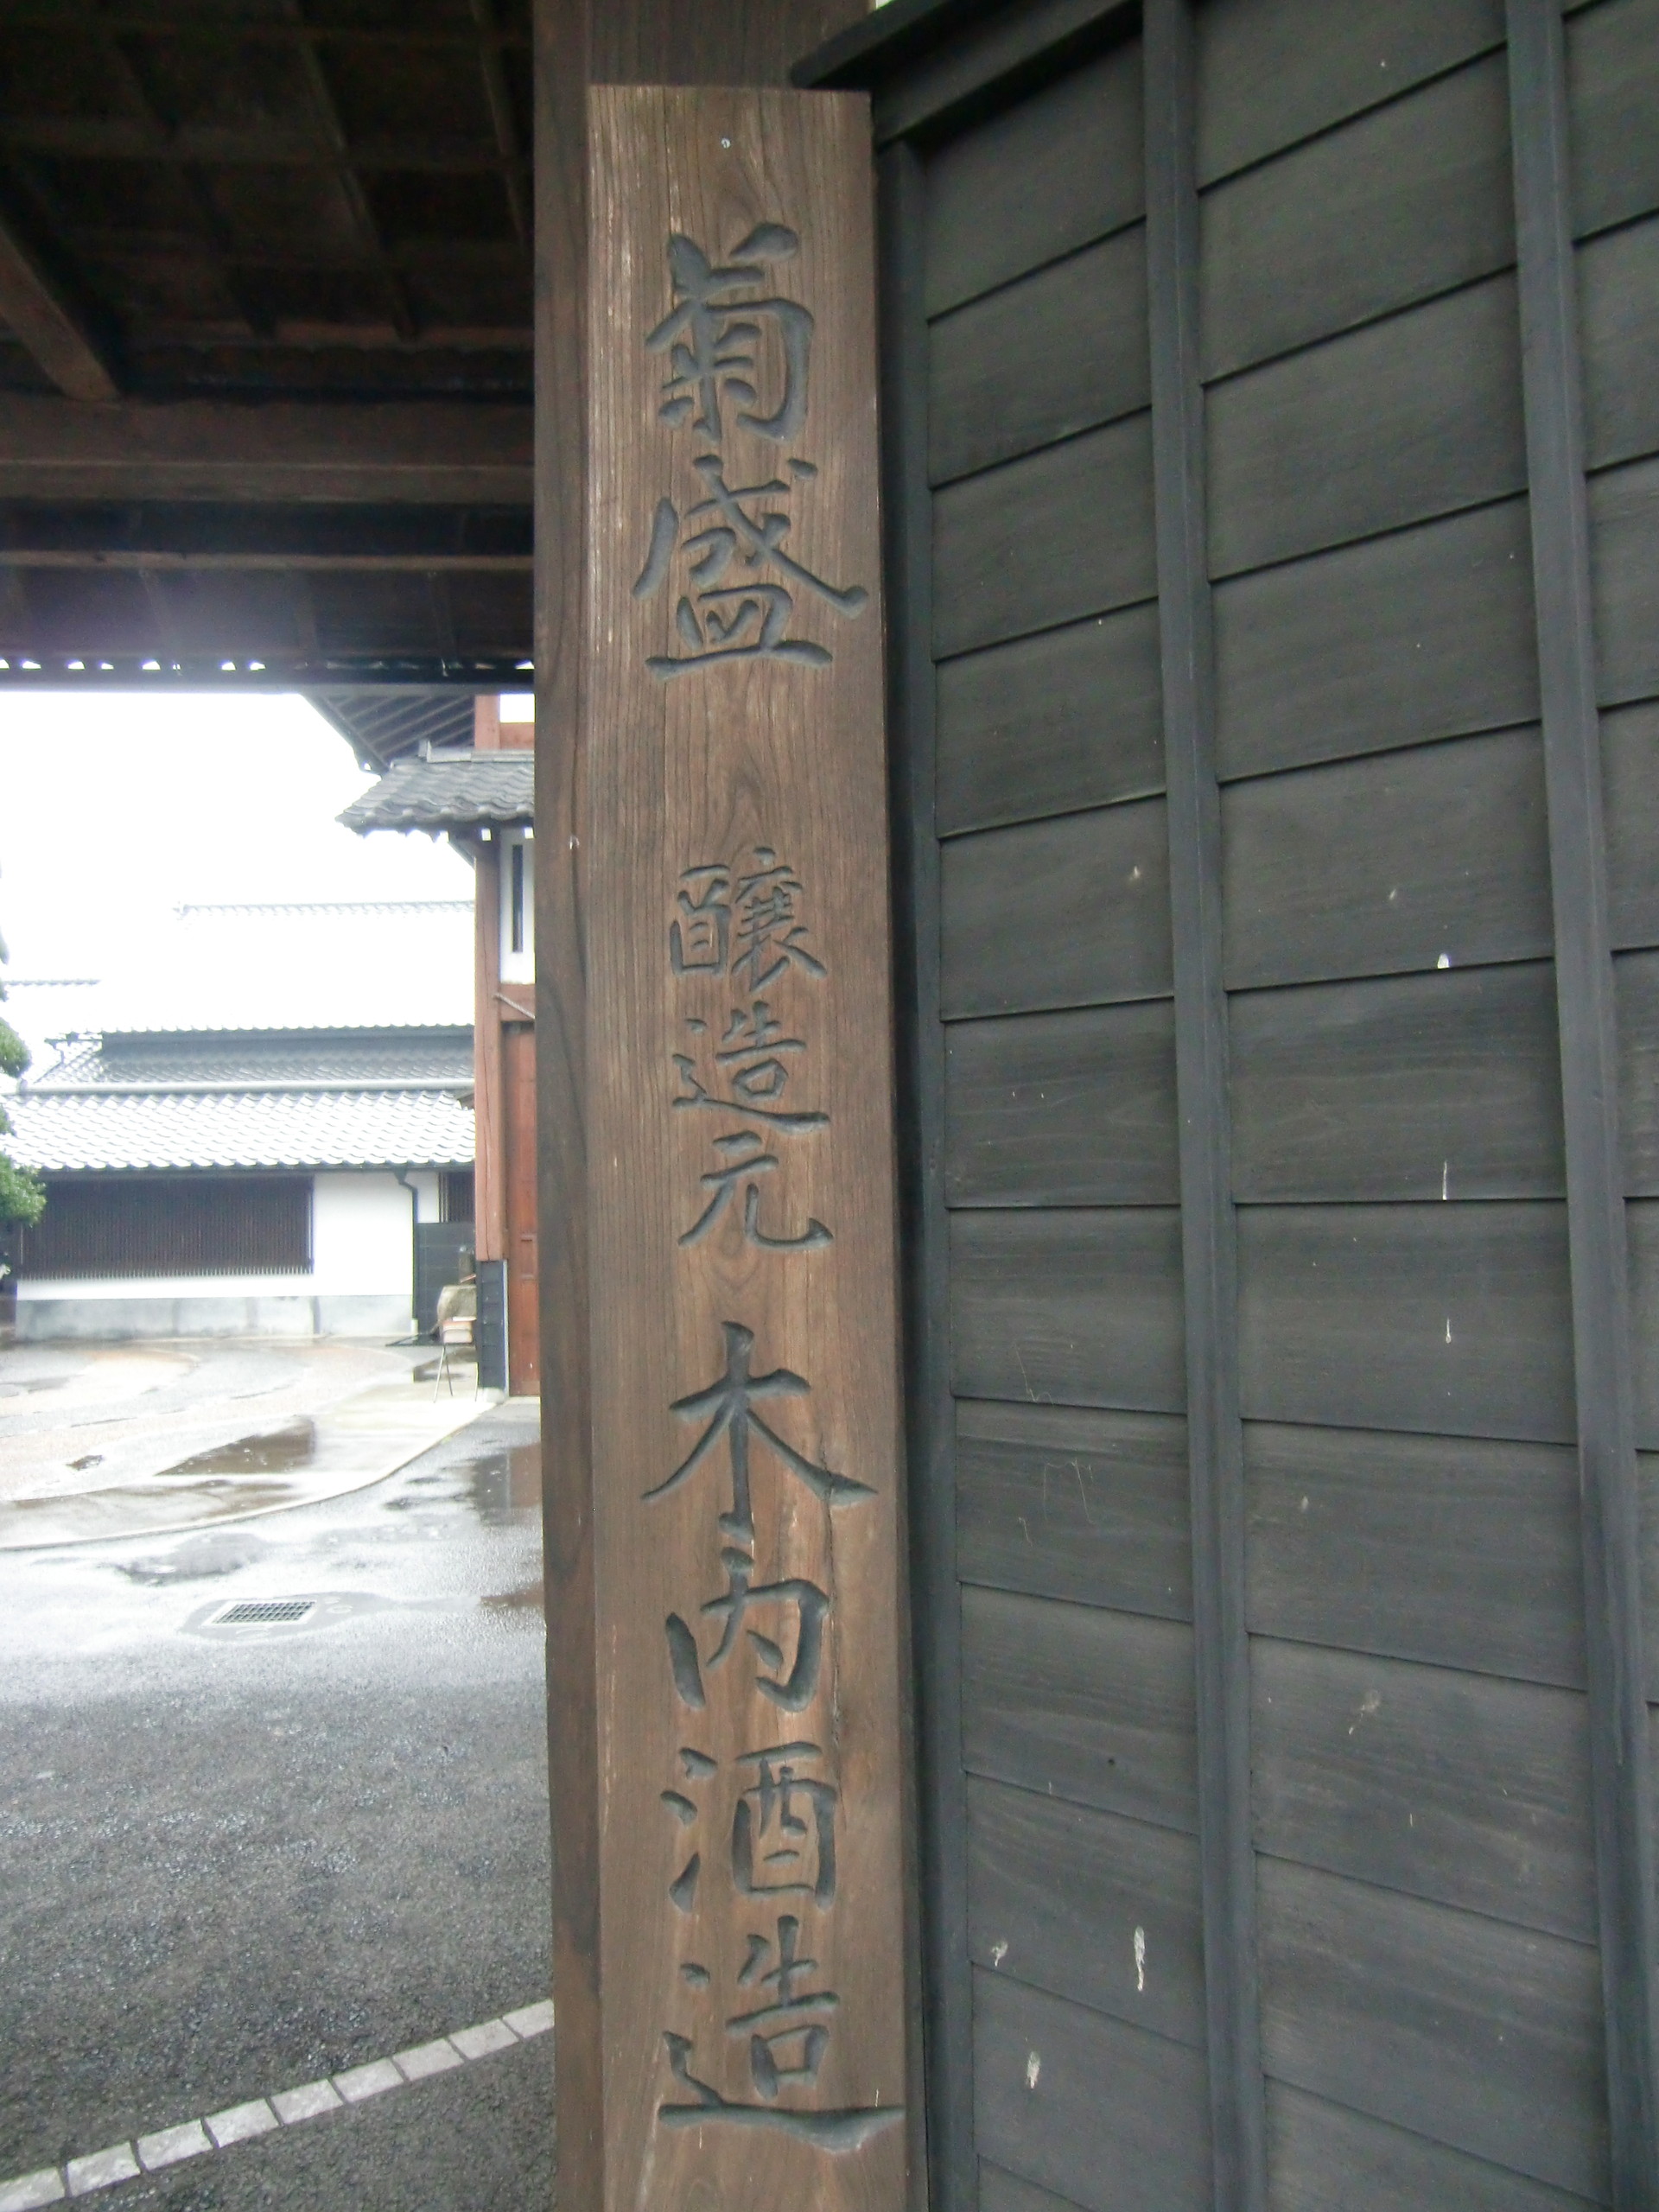 菊盛 醸造元 木内酒造